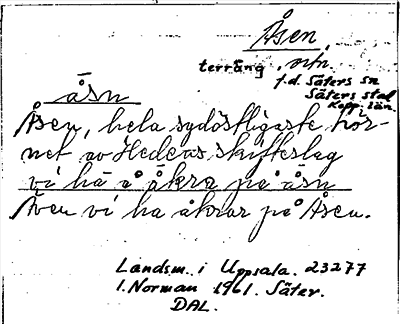 Åsen,
terräng, ntn.
f.d. Säters sn
Säters stad
Kopp. län.
åsn
Åsen, hela sydöstligaste hör-
net av Hedens skifteslag
vi ha å åkra på åsn
Även vi ha åkrar på Åsen.
Landsm. i Uppsala. 23277
I. Norman 1961. Säter.
DAL.